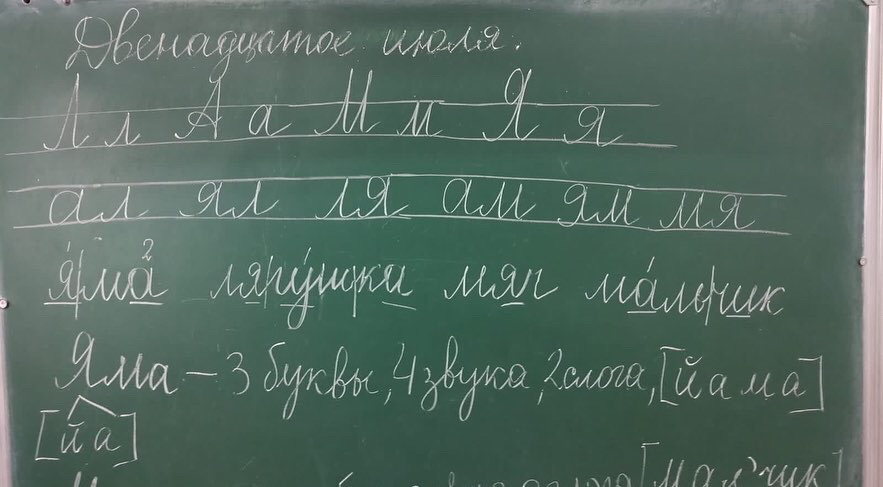 Двенадцатое июля.
Л л А а М м Я я
ал ял ля ам ям мя
я́|ма² ля|гу́шки мяч ма́ль|чик
Яма – 3 буквы, 4 звука, 2 слога, [й а м а]
[й а]
[мал'чик]